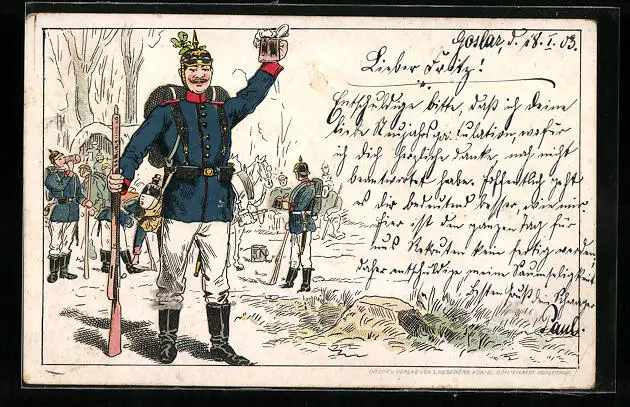 Goslar, d. 18. I. 03.
Lieber Fritz!
Entschuldige bitte, daß ich deine
liebe Neujahrsgratulation, wofür
ich dich herzliche danke, noch nicht
beantwortet habe. Hoffentlich geht
es dir bedeutend besser, wie mir.
Hier ist den ganzen Tag für
uns Rekruten kein fertig werden
daher entschuldige meine Saumseligkeit
Besten Gruß dein Schwager
Paul.
DRUCK U. VERLAG VON